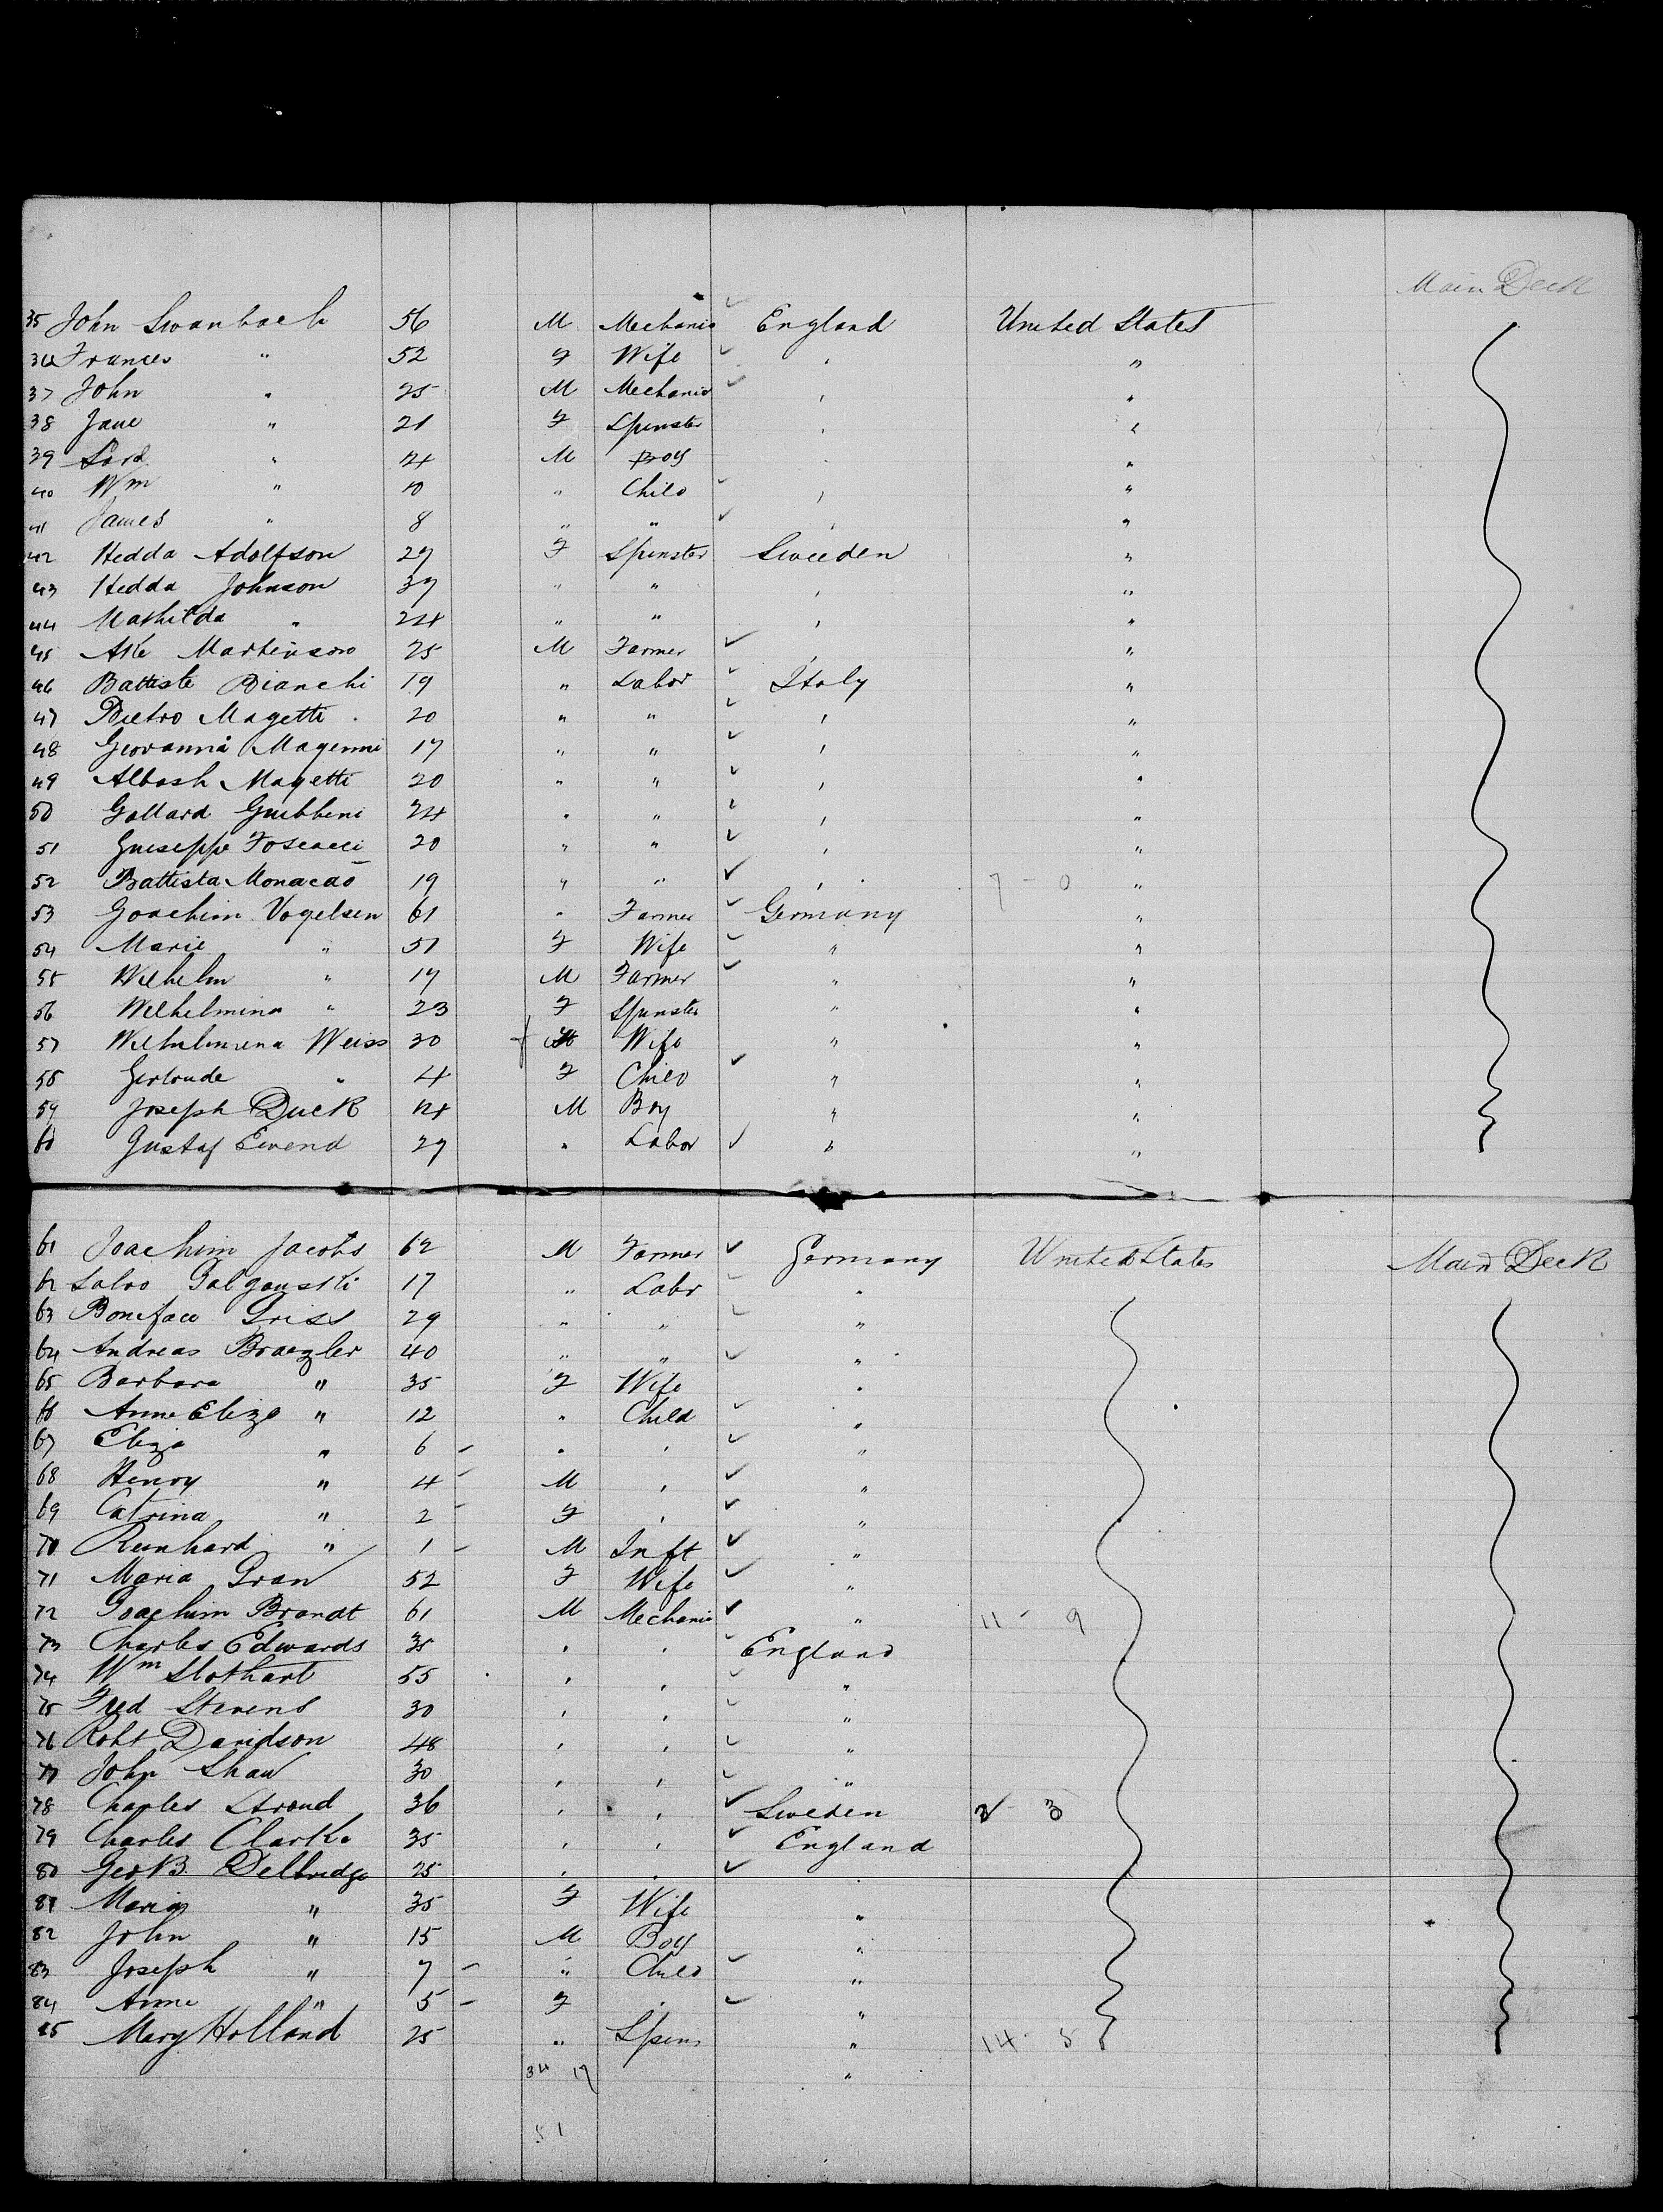 Main Deck
35 John Swanbach 56 M Mechanic ✓ England United States
36 Frances " 52 F Wife ✓ " "
37 John " 25 M Mechanic ✓ " "
38 Jane " 21 F Spinster " "
39 " 14 M Boy "
40 Wm " 10 " Child ✓ " "
41 James " 8 " " ✓ " "
42 Hedda Adolfson 29 F Spinster Sweeden "
43 Hedda Johnson 39 " " " "
44 Mathilda " 24 " " " "
45 Ake Martinson 25 M Farmer ✓ " "
46 Battiste Bianchi 19 " Labor ✓ Italy "
47 Pietro Magetti 20 " " ✓ " "
48 Geovanni Magenni 17 " " ✓ " "
49 Albash Magetti 20 " " ✓ " "
50 Gollard Guibbeni 24 " " ✓ " "
51 Guiseppe Foscacci 20 " " ✓ " "
52 Battista Monacao 19 " " ✓ " 7 - 0 "
53 Joachim Vogelsen 61 " Farmer ✓ Germany "
54 Marie " 51 F Wife ✓ " "
55 Wilhelm " 17 M Farmer ✓ " "
56 Wilhelmina " 23 F Spinster " "
57 Wilhelmena Weiss 30 Wife " "
58 Gertrude " 4 F Child ✓ " "
59 Joseph Duck 14 M Boy " "
60 Gustaf Ewend 29 " Labor ✓ " "
61 Joachim Jacobs 62 M Farmer ✓ Germany United States Main Deck
62 Salvo Galgouski 17 " Labr ✓ "
63 Boniface Griss 29 " " ✓ "
64 Andreas Braezler 40 " " ✓ "
65 Barbara " 35 F Wife "
66 Anne Eliza " 12 " Child ✓ "
67 Eliza " 6 - " " ✓ "
68 Henry " 4 - M " ✓ "
69 Catrina " 2 - F " ✓ "
70 Reinhard " 1 - M Inft ✓ "
71 Maria Gran 52 F Wife ✓ "
72 Joachim Brandt 61 M Mechanic ✓ " 11 - 9
73 Charles Edwards 35 " " ✓ England
74 Wm Slothart 55 " " ✓ "
75 Fred Stevens 30 " " ✓ "
76 Robt Davidson 48 " " ✓ "
77 John Shaw 30 " " ✓ "
78 Charles Stroud 36 " " ✓ Sweden 2 - 3
79 Charles Clarke 35 " " ✓ England
80 Geo B. Delbridge 25 " " ✓ "
81 Maria " 35 F Wife "
82 John " 15 M Boy "
83 Joseph " 7 - " Child ✓ "
84 Anne " 5 - F " ✓ "
85 Mary Holland 25 " Spin " 14 - 5
34 17 "
51